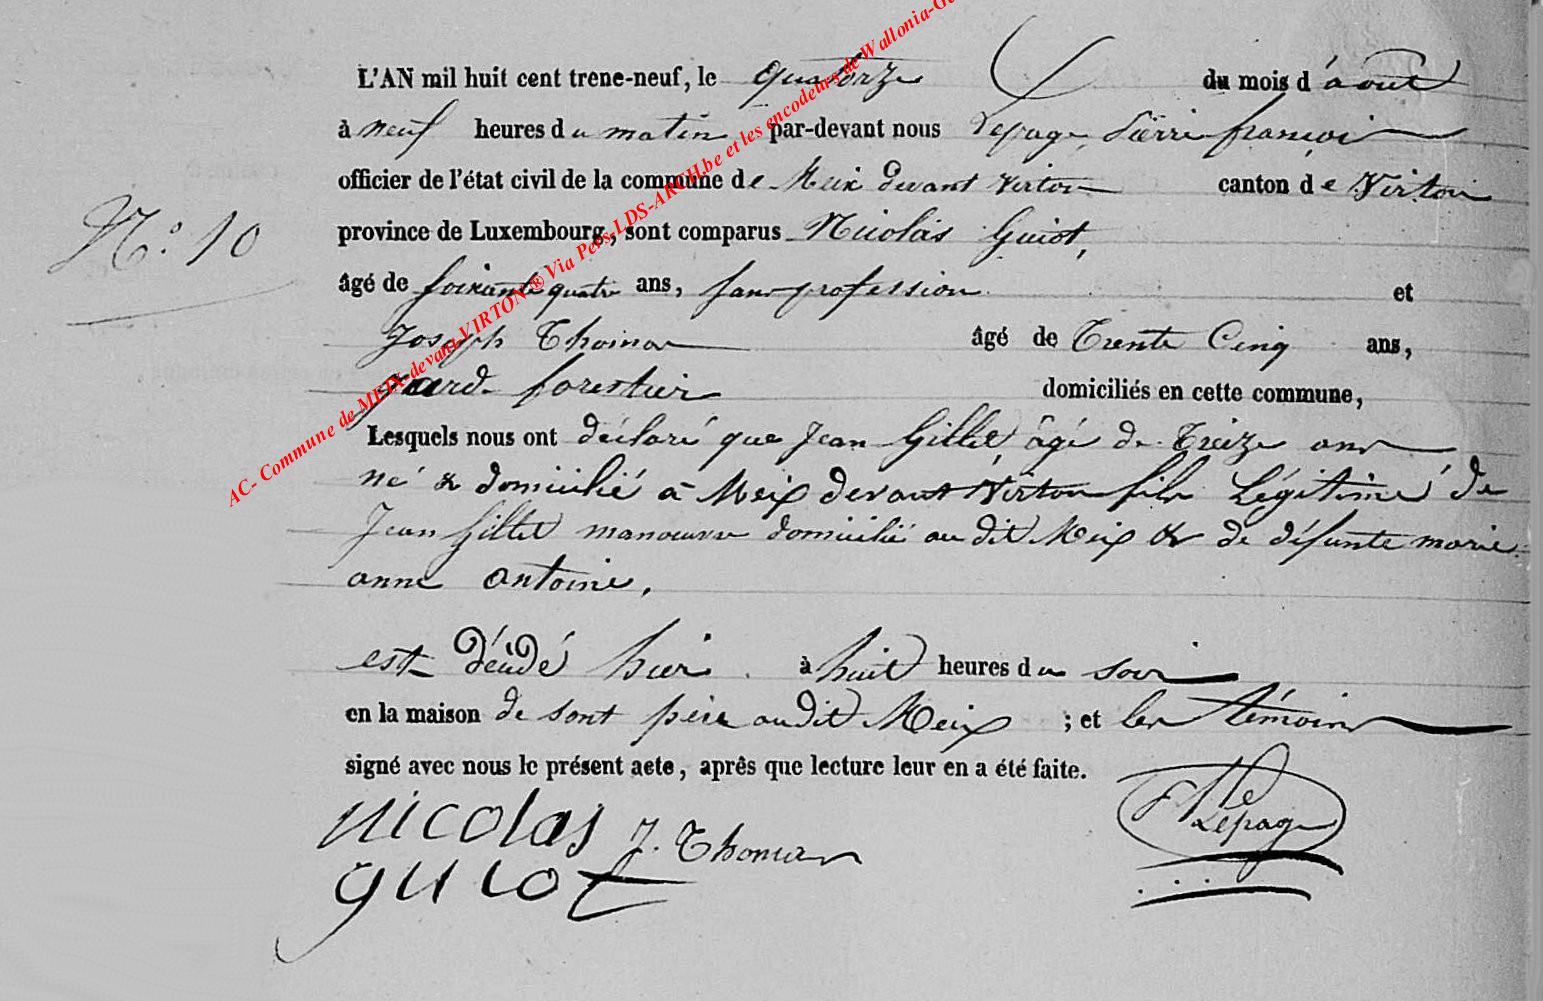 L'AN mil huit cent trene-neuf, le quatorze du mois d'août
à neuf heures du matin par-devant nous Lepage, Pierre françois
officier de l'état civil de la commune de Meix devant virton canton de Virton
N.° 10
province de Luxembourg, sont comparus Nicolas Guiot,
âgé de soixante quatre ans, sans profession et
Joseph Thomas âgé de Trente Cinq ans,
gard forestier domiciliés en cette commune,
Lesquels nous ont déclaré que Jean Gillet, âgé de Treize ans
né & domicilié à Meix devant Virton fils Légitime de
Jean Gillet manoeuvre domicilié au dit Meix & de défunte marie
anne antoine.
est décédé hier à huit heures du soir
en la maison de sont père audit Meix ; et les témoins
signé avec nous le présent acte, après que lecture leur en a été faite.
nicolas J. Thomas
guiot
Lepage
AC- Commune de MEIX-devant-VIRTON ® Via Pers-LDS-ARCH.be et les encodeurs de Wallonia-Ge